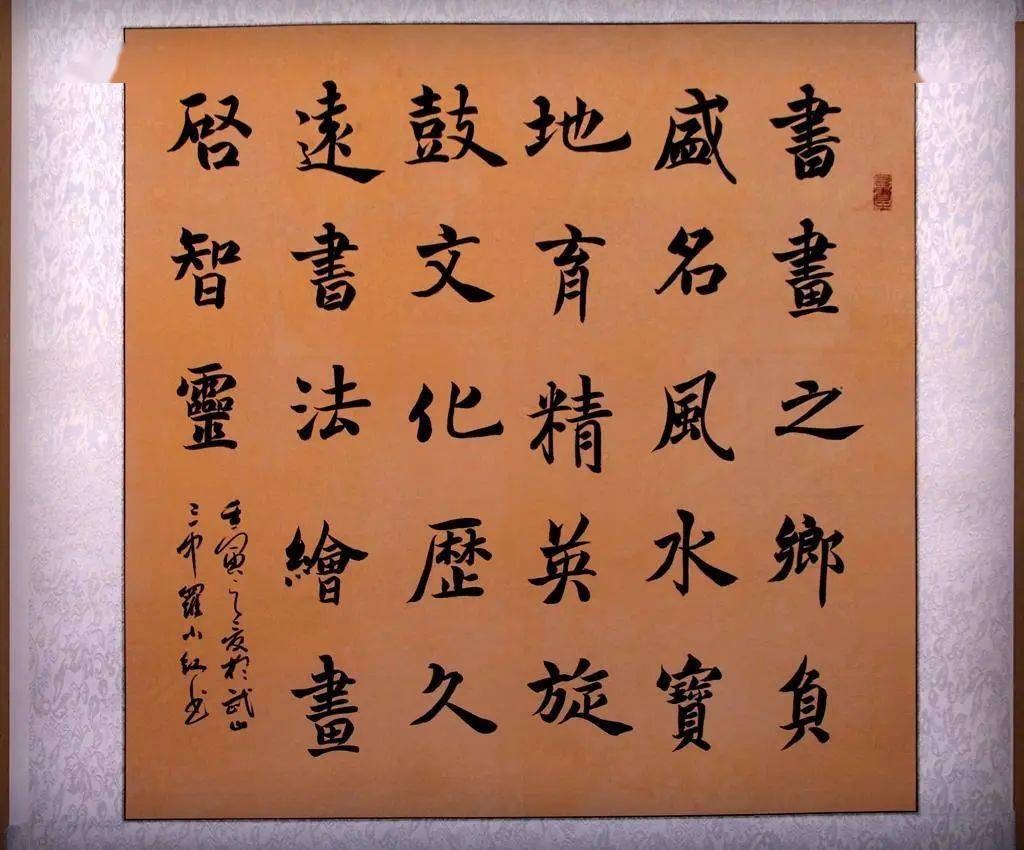 書畫之鄉負
盛名風水寶
地育精英旋
鼓文化歷久
遠書法繪畫
啓智靈
壬寅之夏於武山
羅小紅书